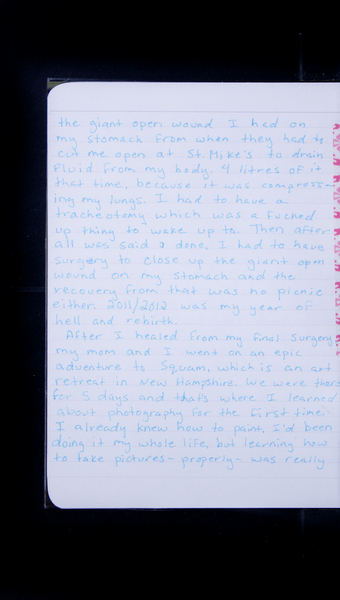 the giant open wound I had on
my stomach from when they had to
cut me open at St. Mike's to drain
fluid from my body. 4 litres of it
that time, because it was compress-
ing my lungs. I had to have a
tracheotomy which was a fucked
up thing to wake up to. Then after
all was said & done, I had to have
surgery to close up the giant open
wound on my stomach and the
recovery from that was no picnic
either. 2011/2012 was my year of
hell and rebirth.
After I healed from my final surgery
my mom and I went on an epic
adventure to Squam, which is an art
retreat in New Hampshire. We were there
for 5 days, and that's where I learned
about photography for the first time.
I already knew how to paint, I'd been
doing it my whole life, but learning how
to take pictures - properly - was really